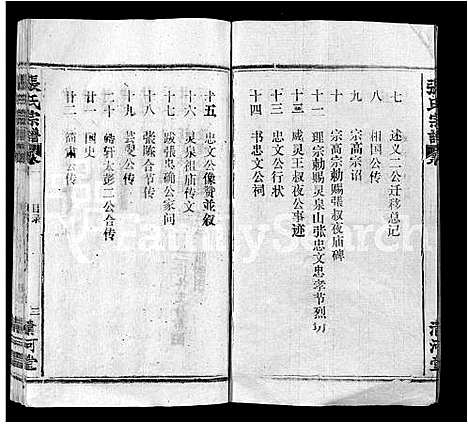 張氏宗譜
七 述义二公迁移总记
八 相国公传
九 宗高宗诏
十 宗高宗勅赐張叔夜庙碑
十一 理宗勅赐灵泉山张忠文忠孝节烈坊
十二 威灵王叔夜公事迹
十三 忠文公行状
十四 书忠文公祠
清河堂
十五 忠文公像赞並叙
十六 灵泉祖庙传文
十七 跋張忠确公家问
十八 张陈合节传
十九
二十
廿一 国史
廿二 简肃公传
張氏宗譜
目录
三
清河堂
FamilySearch